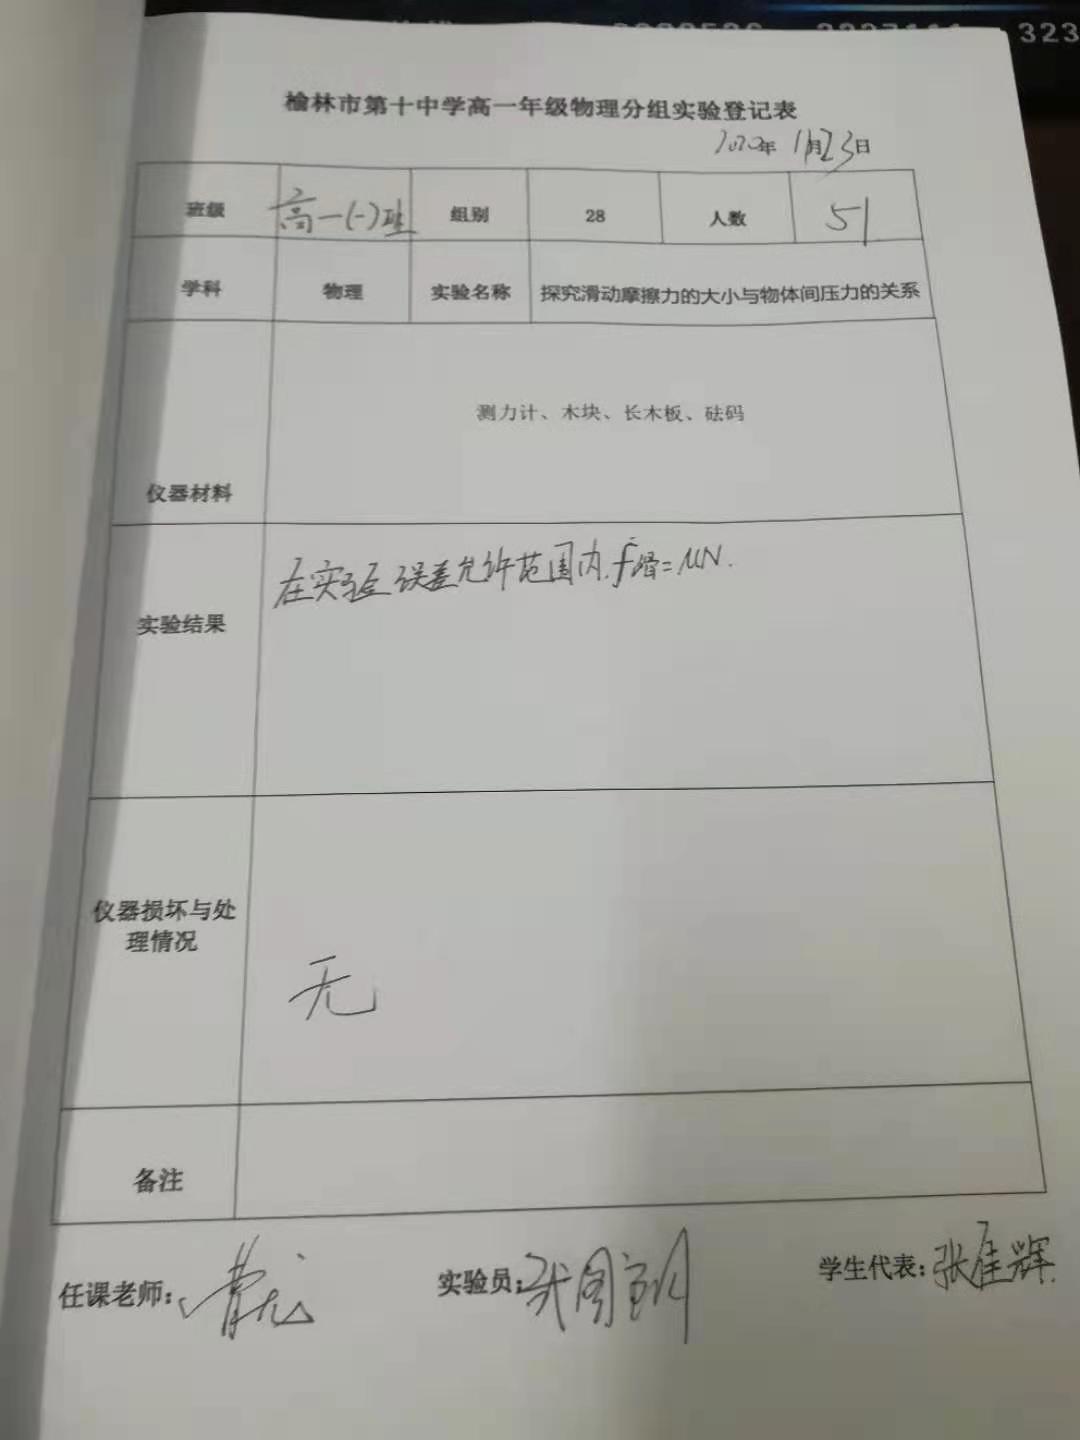 323
榆林市第十中学高一年级物理分组实验登记表
2020年 11月23日
班级 高一(一)班 组别 28 人数 51
学科 物理 实验名称 探究滑动摩擦力的大小与物体间压力的关系
测力计、木块、长木板、砝码
仪器材料
在实验误差允许范围内.f滑=μN.
实验结果
仪器损坏与处
理情况
无
备注
任课老师: 实验员: 学生代表:张佳辉